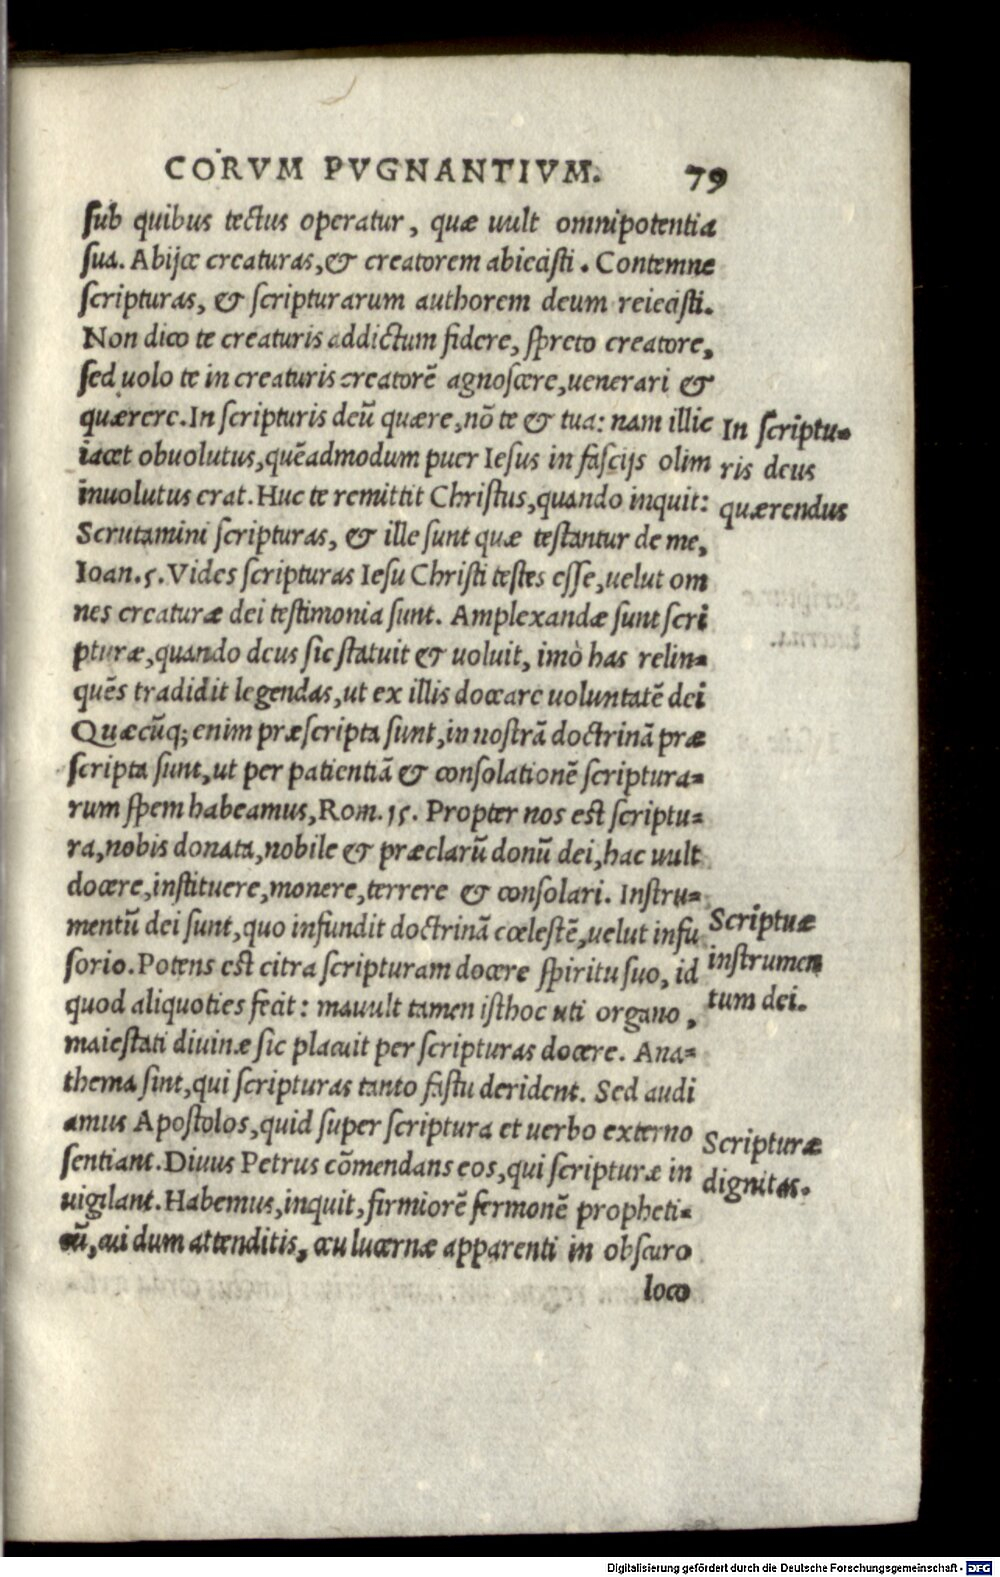 CORVM PVGNANTIVM. 79
sub quibus tectus operatur, quæ uult omnipotentia
sua. Abijce creaturas, & creatorem abiecisti. Contemne
scripturas, & scripturarum authorem deum reiecisti.
Non dico te creaturis addictum fidere, spreto creatore,
sed uolo te in creaturis creatorẽ agnoscere, uenerari &
quærere. In scripturis deũ quære, nõ te & tua: nam illic
iacet obuolutus, quẽadmodum puer Iesus in fascijs olim
inuolutus erat. Huc te remittit Christus, quando inquit:
Scrutamini scripturas, & ille sunt quæ testantur de me,
Ioan. 5. Vides scripturas Iesu Christi testes esse, uelut om
nes creaturæ dei testimonia sunt. Amplexandæ sunt scri
pturæ, quando deus sic statuit & uoluit, imò has relin=
quẽs tradidit legendas, ut ex illis doceare uoluntatẽ dei
Quæcũq; enim præscripta sunt, in nostrã doctrinã præ
scripta sunt, ut per patientiã & consolationẽ scriptura=
rum spem habeamus, Rom. 15. Propter nos est scriptu=
ra, nobis donata, nobile & præclarũ donũ dei, hac uult
docere, instituere, monere, terrere & consolari. Instru=
mentũ dei sunt, quo infundit doctrinã cœlestẽ, uelut infu
sorio. Potens est citra scripturam docere spiritu suo, id
quod aliquoties fecit: mauult tamen isthoc uti organo,
maiestati diuinæ sic placuit per scripturas docere. Ana=
thema sint, qui scripturas tanto fastu derident. Sed audi
amus Apostolos, quid super scriptura et uerbo externo
sentiant. Diuus Petrus cõmendans eos, qui scripturæ in
uigilant. Habemus, inquit, firmiorẽ sermonẽ propheti=
cũ, cui dum attenditis, ceu lucernæ apparenti in obscuro
loco
In scriptu=
ris deus
quærendus
Scriptuæ
instrumen
tum dei.
Scripturæ
dignitas.
Digitalisierung gefördert durch die Deutsche Forschungsgemeinschaft - DFG